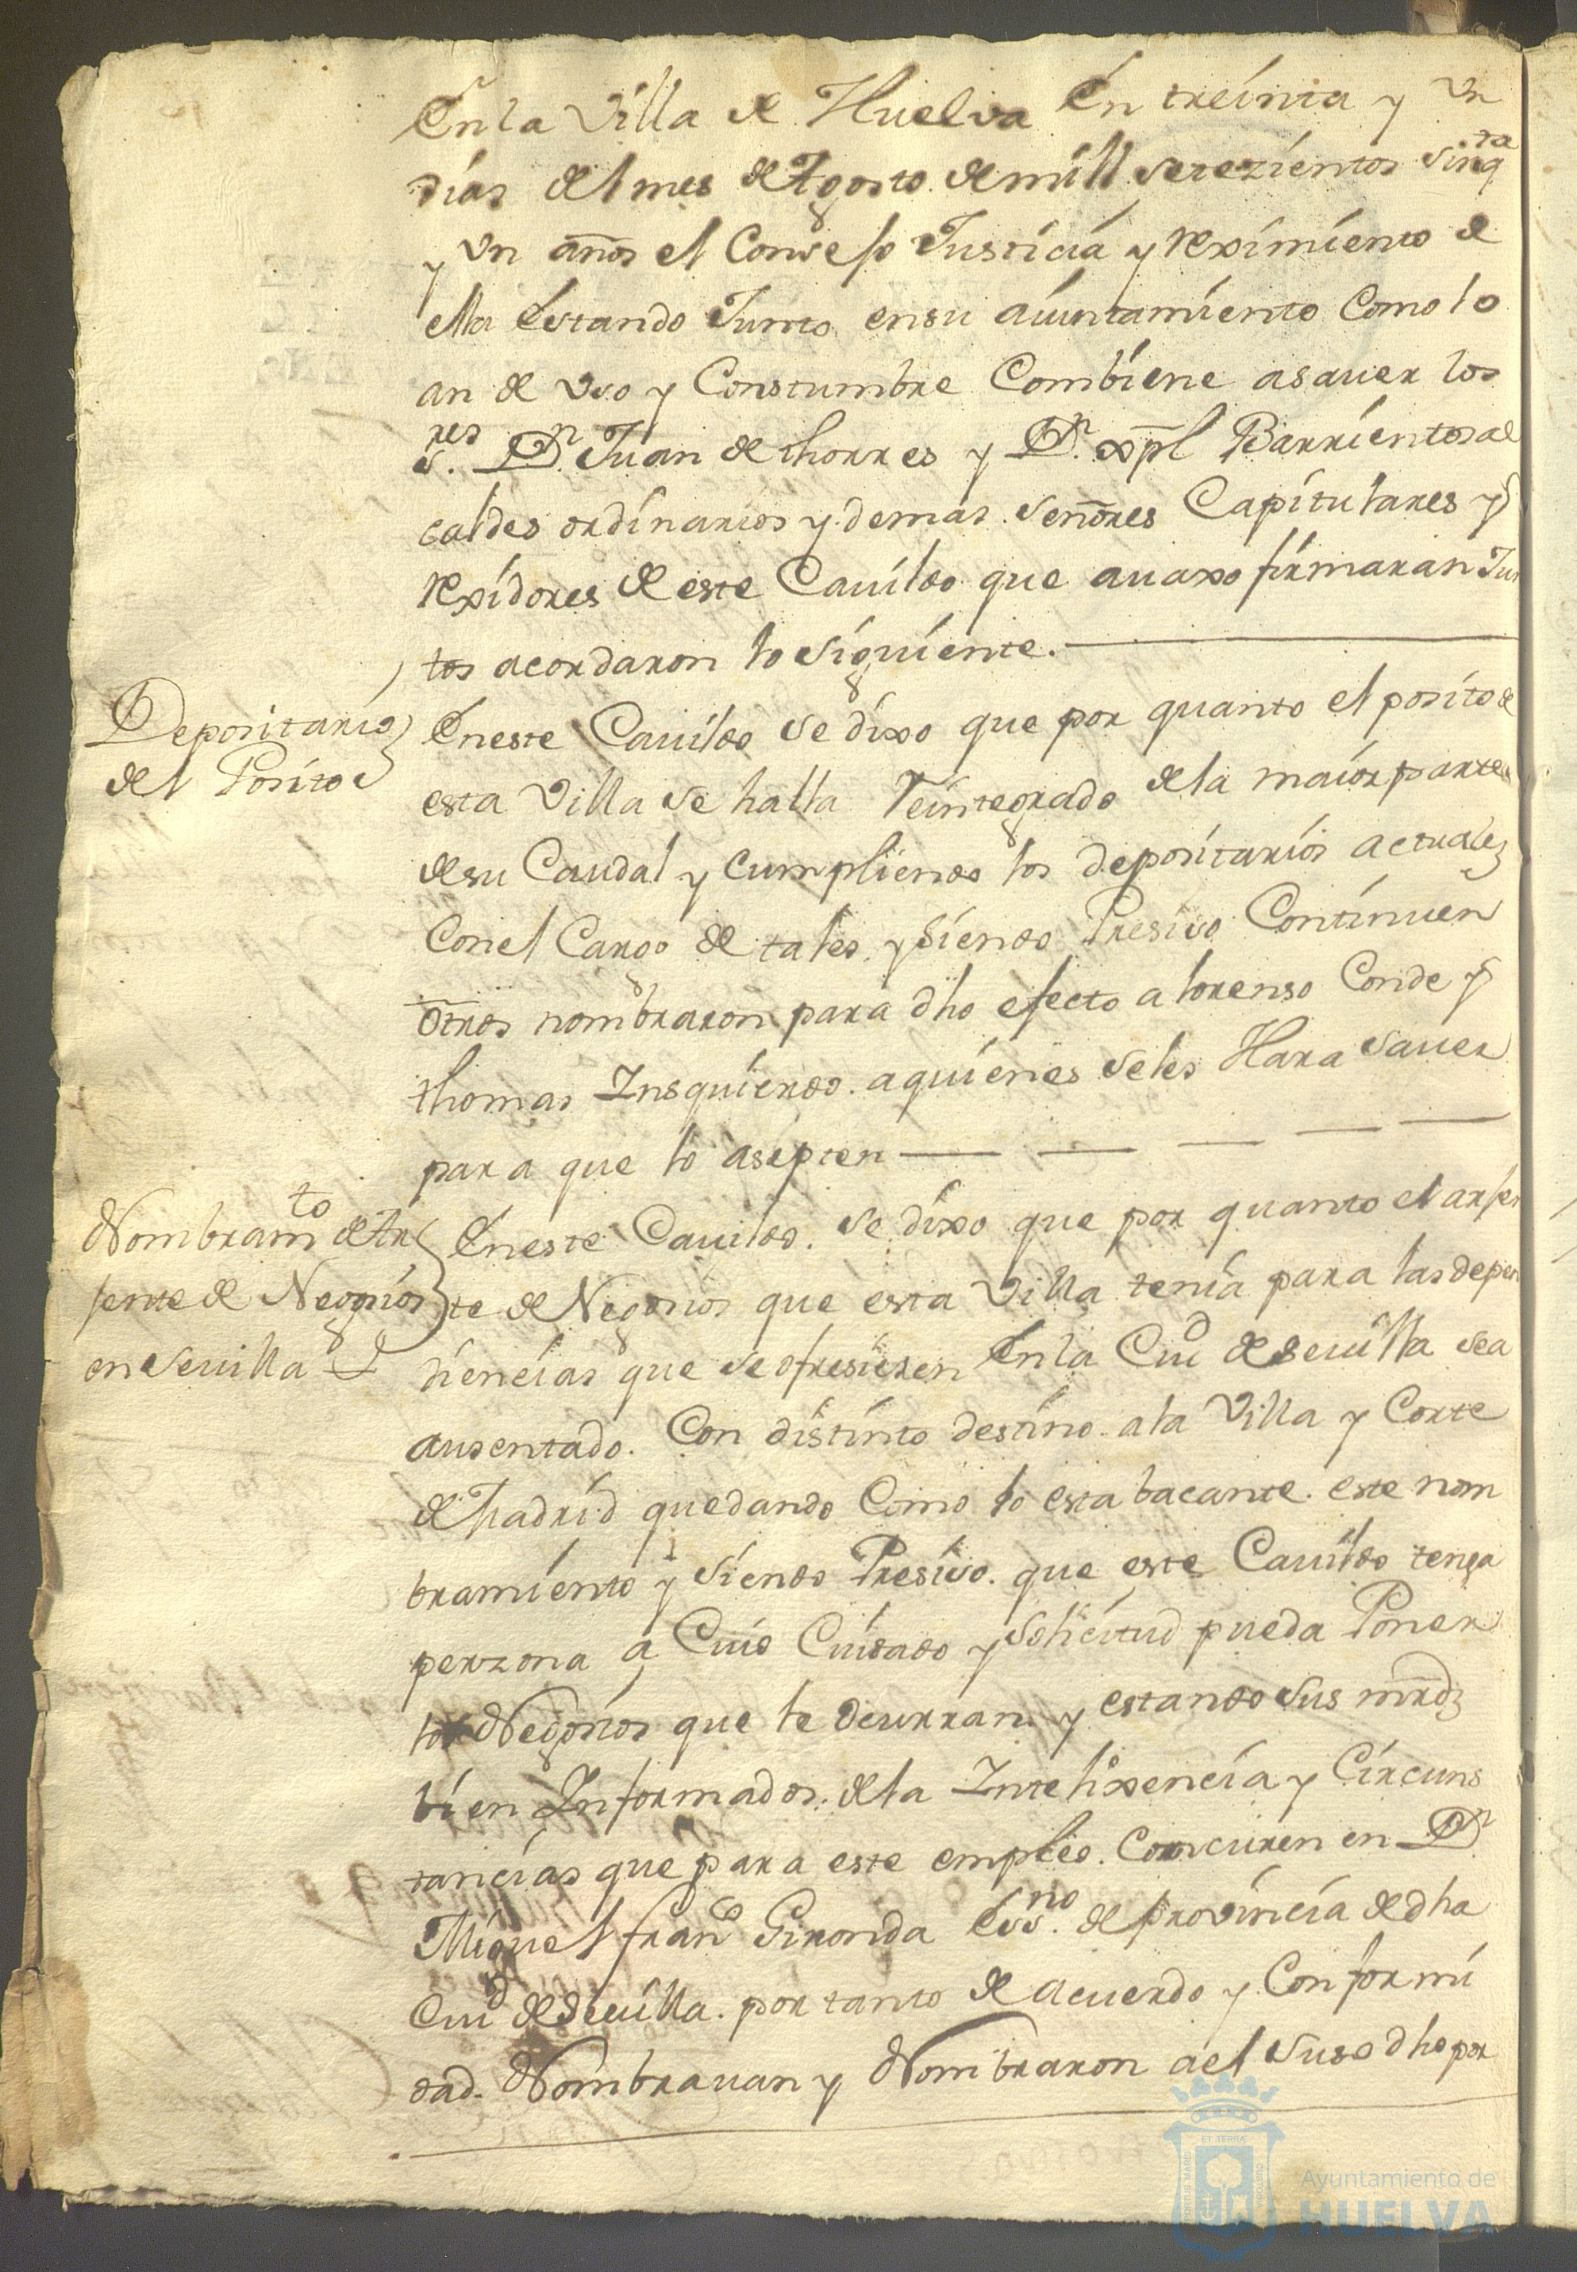 En la Villa de Huelva En treinta y Un
dias del mes de Agosto de mill setezientos sinqta
y Un años el Consejo Justicia y reximiento de
ella Estando Junto en su aiuntamiento Como lo
an de Uso y Constumbre Combiene asauer los
sres. Dn. Juan de thorres y Dn. xpl Barrientos al
caldes ordinarios y demas señores Capitulares y
rexidores de este Cauildo que auaxo firmaran Jun
tos acordaron lo siguiente.
Depositario
del Posito
En este Cauildo se dixo que por quanto el posito de
esta Villa se halla reintegrado de la maior parte
de su Caudal y cumpliendo los depositarios actuales
Con el Cargo de tales y siendo Presiso Continuen
otros nombraron para dho efecto a lorenso Conde y
thomas Insquierdo. a quienes se les Hara sauer
para que lo asepten
Nombramto de Ar
jente de Negosios
en Seuilla
En este Cauildo. se dixo que por quanto el arjen
te de Negosios que esta Villa tenia para las depen
diencias que se ofresiesen En la Ciud de Seuilla sea
ausentado. Con distinto destino a la Villa y Corte
de Madrid quedando Como lo esta bacante. este nom
bramiento y siendo Presiso. que este Cauildo tenga
perzona a Cuio Cuidado y solicitud pueda Poner
los Negosios que le ocurran y estando sus mrdz
bien Informados. de la Intelixencia y Circuns
tancias que para este empleo. Concuren en Dn
Miguel franco Gironda Essno. de provincia de dha
Ciud de Seuilla. por tanto de acuerdo y Conformi
dad. Nombrauan y Nombraron a el suso dho por
EI TERRÆ
Ayuntamiento de
HUELVA